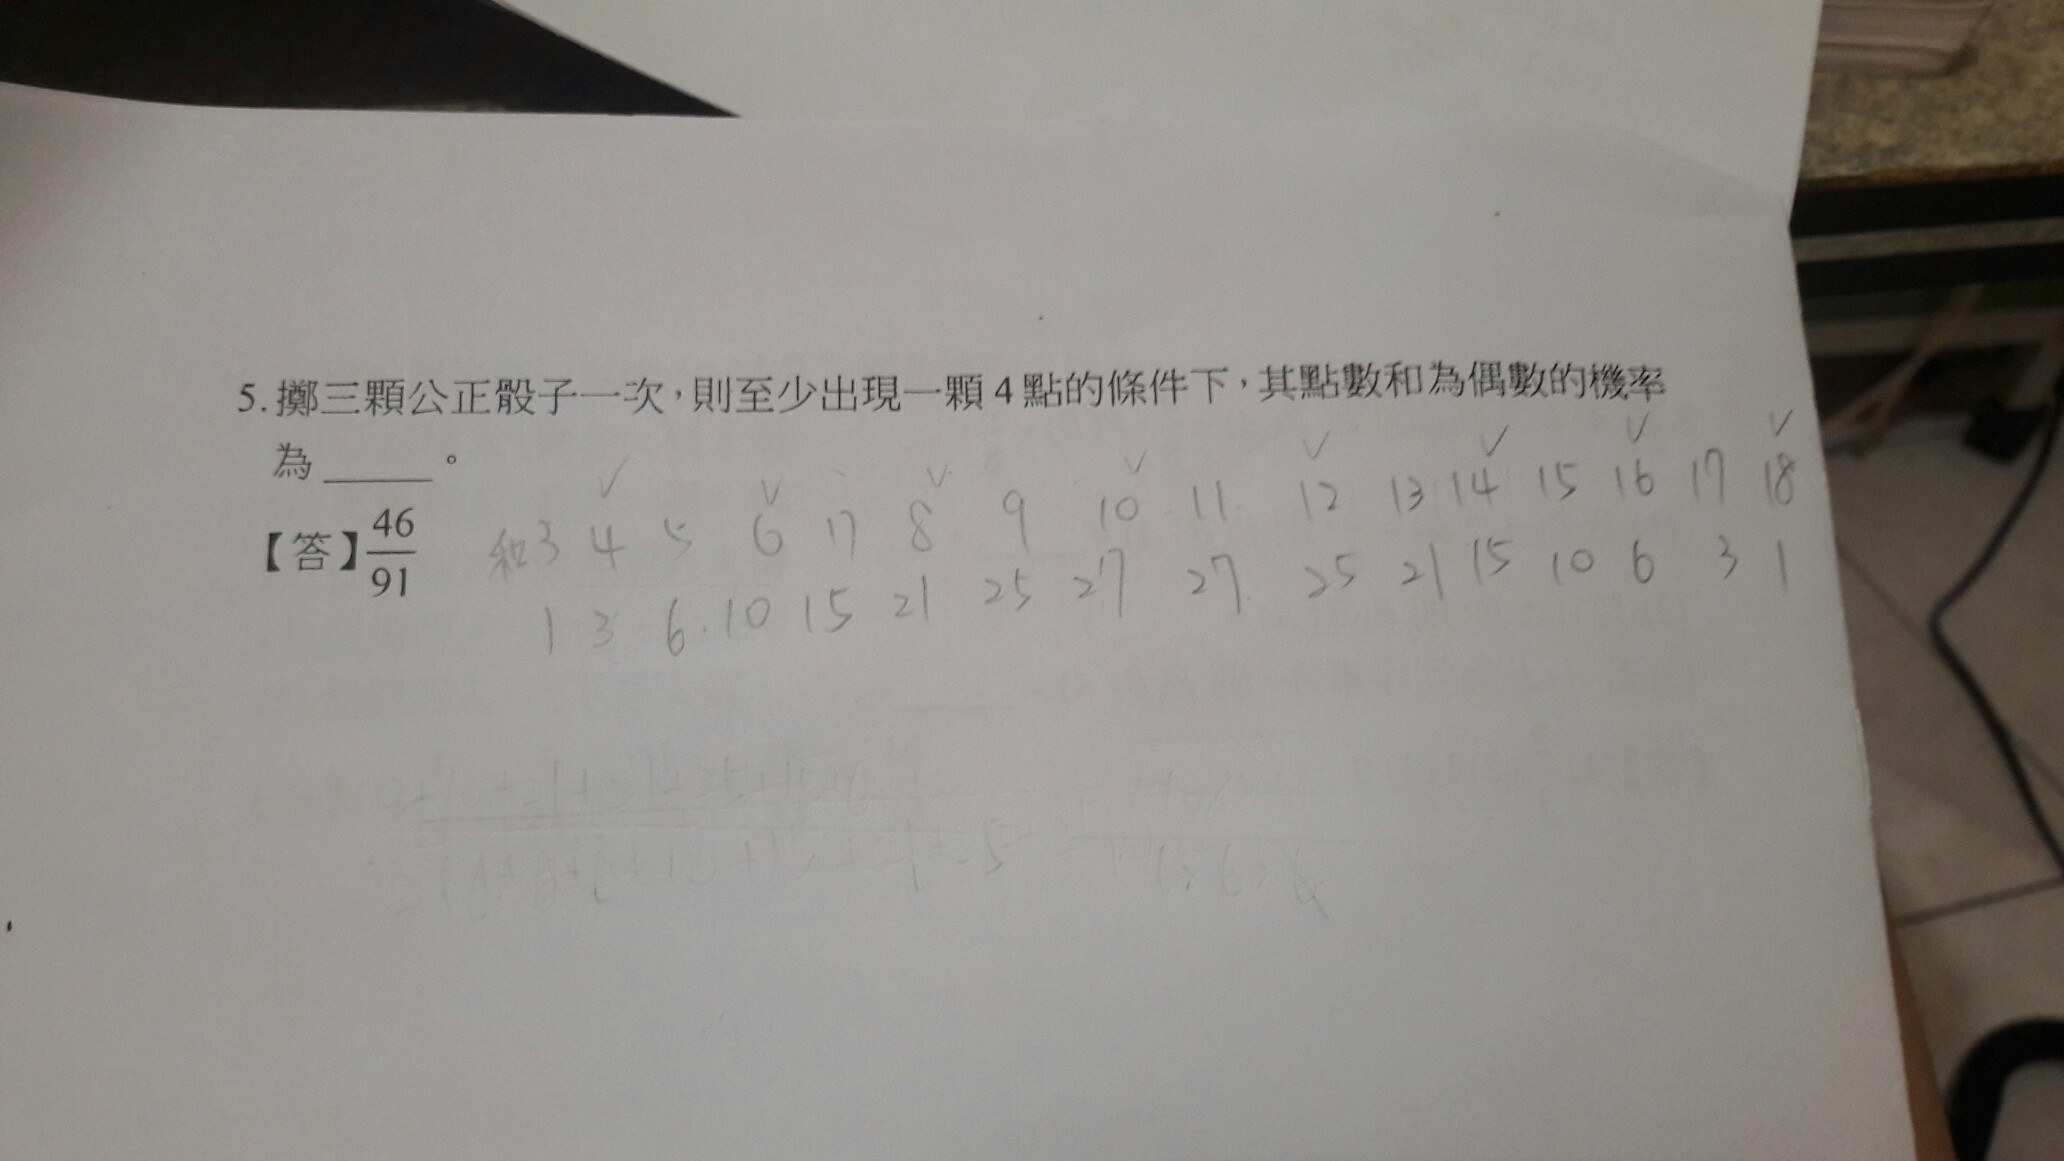 5.擲三顆公正骰子一次，則至少出現一顆4點的條件下，其點數和為偶數的機率
為____。
【答】46/91
和 3 4 5 6 7 8 9 10 11 12 13 14 15 16 17 18
1 3 6 10 15 21 25 27 27 25 21 15 10 6 3 1